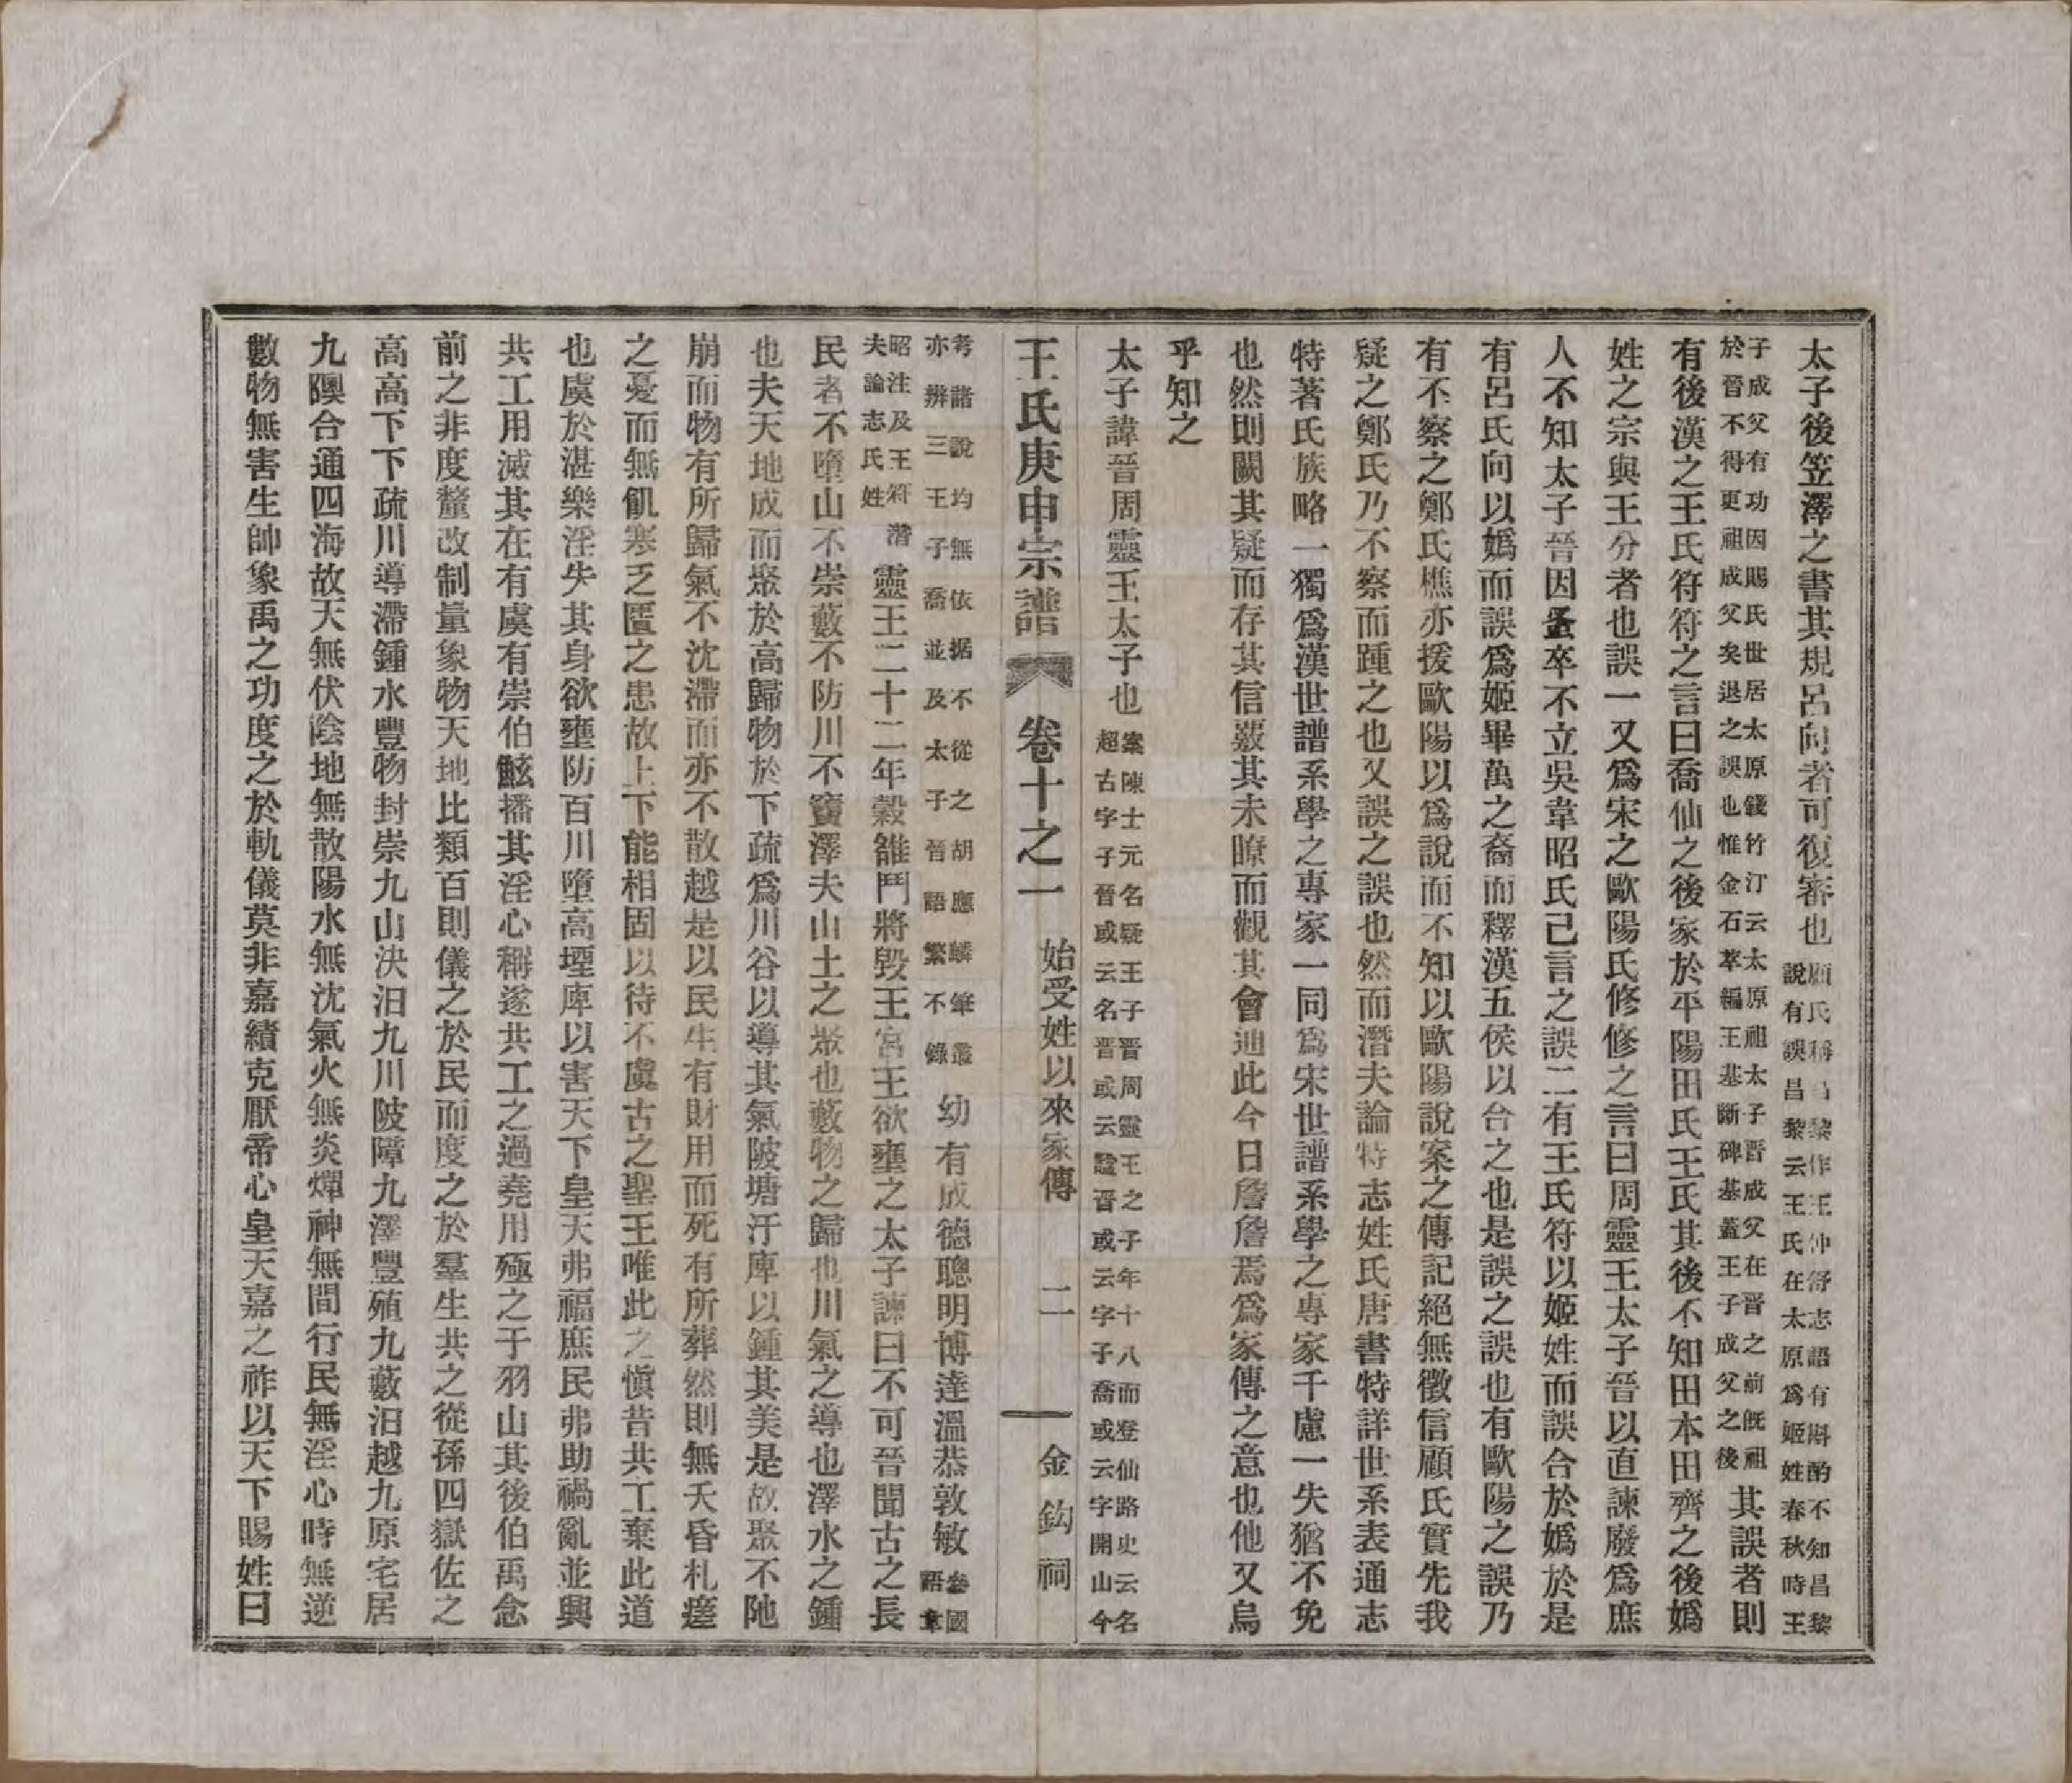 太子後笠澤之書其規呂向者可復審也顧氏稱昌黎作王仲舒志語有斟酌不知昌黎說有誤昌黎云王氏在太原爲姬姓春秋時王
子成父有功因賜氏世居太原錢竹汀云太原祖太子晉成父在晉之前旣祖於晉不得更祖成父矣退之誤也惟金石萃編王基斷碑基蓋王子成父之後其誤者則
有後漢之王氏符符之言曰喬仙之後家於平陽田氏王氏其後不知田本田齊之後嬀
姓之宗與王分者也誤一又爲宋之歐陽氏修修之言曰周靈王太子晉以直諫廢爲庶
人不知太子晉因蚤卒不立吳韋昭氏己言之誤二有王氏符以姬姓而誤合於嬀於是
有呂氏向以嬀而誤爲姬畢萬之裔而釋漢五侯以合之也是誤之誤也有歐陽之誤乃
有不察之鄭氏樵亦援歐陽以爲說而不知以歐陽說案之傳記絕無徵信顧氏實先我
疑之鄭氏乃不察而踵之也又誤之誤也然而潛夫論特志姓氏唐書特詳世系表通志
特著氏族略一獨爲漢世譜系學之專家一同爲宋世譜系學之專家千慮一失猶不免
也然則闕其疑而存其信覈其未瞭而觀其會迪此今日詹詹焉爲家傳之意也他又烏
乎知之
太子諱晉周靈王太子也案陳士元名疑王子晉周靈王之子年十八而登仙路史云名超古字子晉或云名晋或云諡晋或云字子喬或云字開山今
王氏庚申宗譜 卷十之一 始受姓以來家傳 二 金鈎祠
考諸說均無依据不從之胡應麟筆叢亦辨三王子喬並及太子晉語繁不錄幼有成德聰明博達溫恭敦敏參國語韋
昭注及王符潛夫論志氏姓靈王二十二年穀雒鬥將毀王宮王欲壅之太子諫曰不可晉聞古之長
民者不墮山不崇藪不防川不竇澤夫山土之聚也藪物之歸也川氣之導也澤水之鍾
也夫天地成而聚於高歸物於下疏爲川谷以導其氣陂塘汙庳以鍾其美是故聚不阤
崩而物有所歸氣不沈滯而亦不散越是以民生有財用而死有所葬然則無夭昏札瘥
之憂而無飢寒乏匱之患故上下能相固以待不虞古之聖王唯此之愼昔共工棄此道
也虞於湛樂淫失其身欲壅防百川墮高堙庳以害天下皇天弗福庶民弗助禍亂並興
共工用滅其在有虞有崇伯鮌播其淫心稱遂共工之過堯用殛之于羽山其後伯禹念
前之非度釐改制量象物天地比類百則儀之於民而度之於羣生共之從孫四嶽佐之
高高下下疏川導滯鍾水豐物封崇九山決汨九川陂障九澤豐殖九藪汨越九原宅居
九隩合通四海故天無伏陰地無散陽水無沈氣火無炎燀神無間行民無淫心時無逆
數物無害生帥象禹之功度之於軌儀莫非嘉績克厭帝心皇天嘉之祚以天下賜姓曰